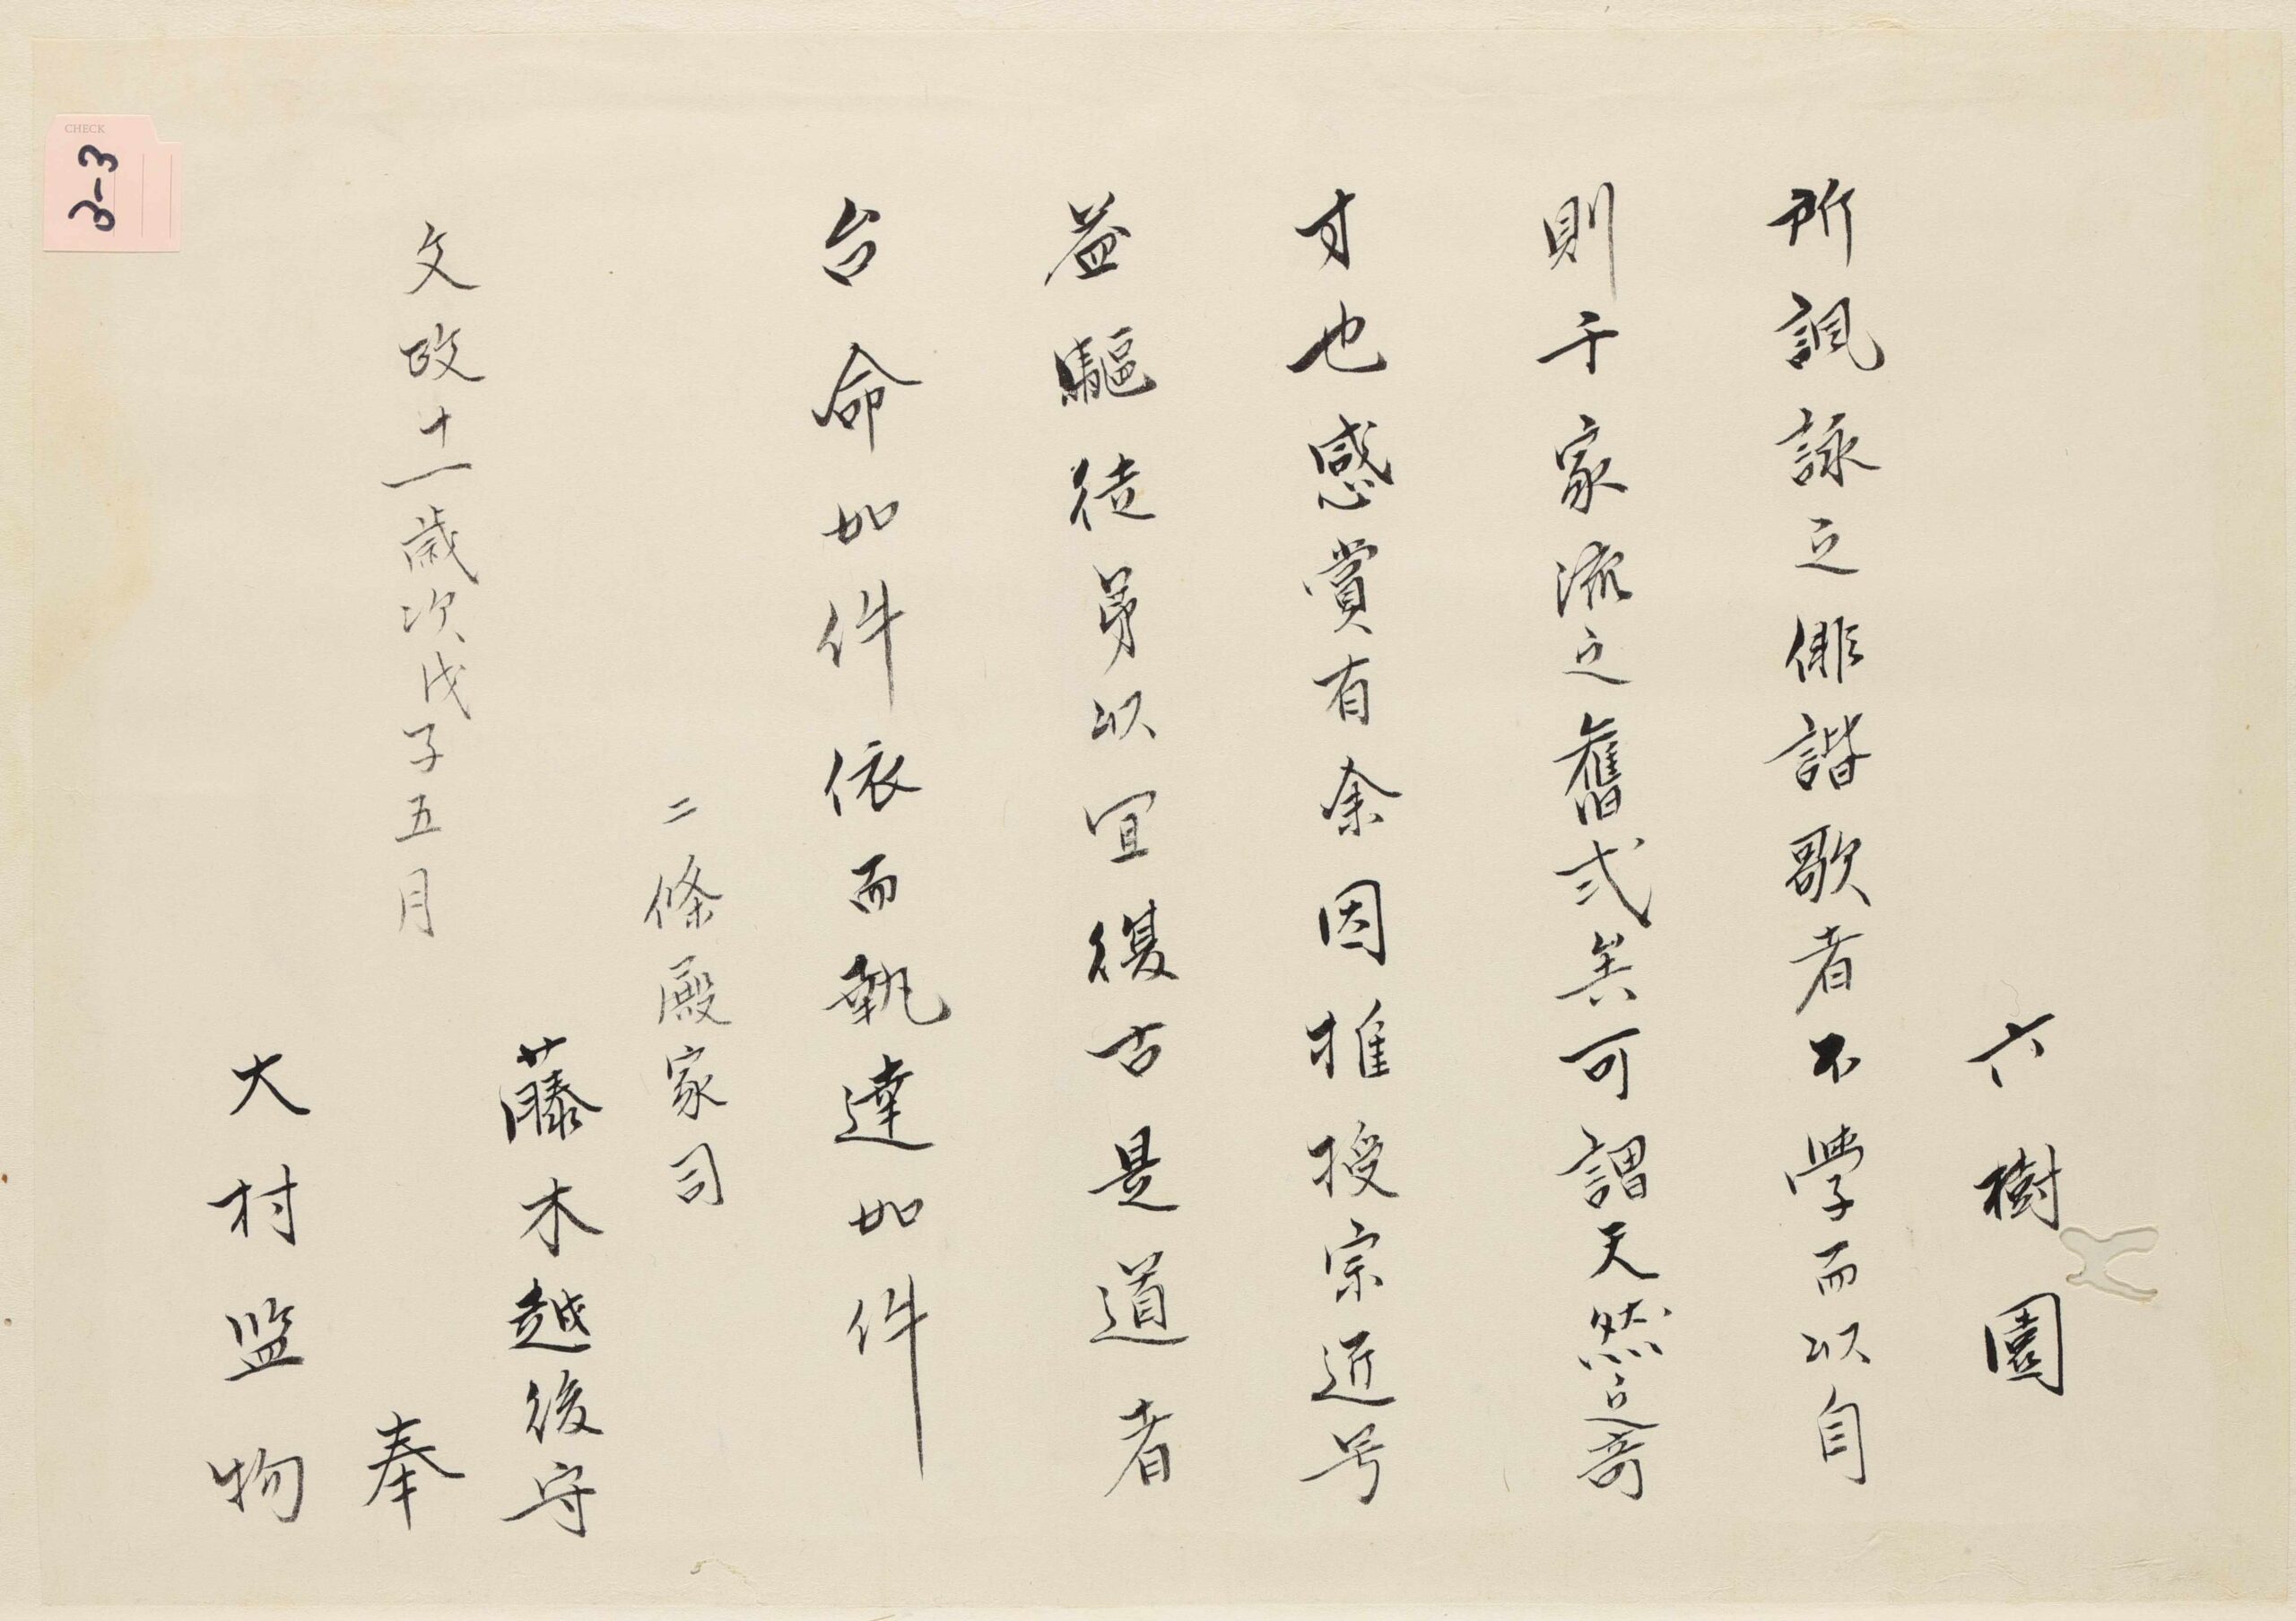 六樹園
所諷詠之俳諧歌者不学而以自
則于家流之舊式矣可謂天然之奇
才也感賞有余因推授宗近号
益驅徒弟以宜復古是道者
台命如件依而執達如件
二條殿家司
藤木越後守
奉
文政十一歳次戊子五月
大村监物
CHECK
3-3